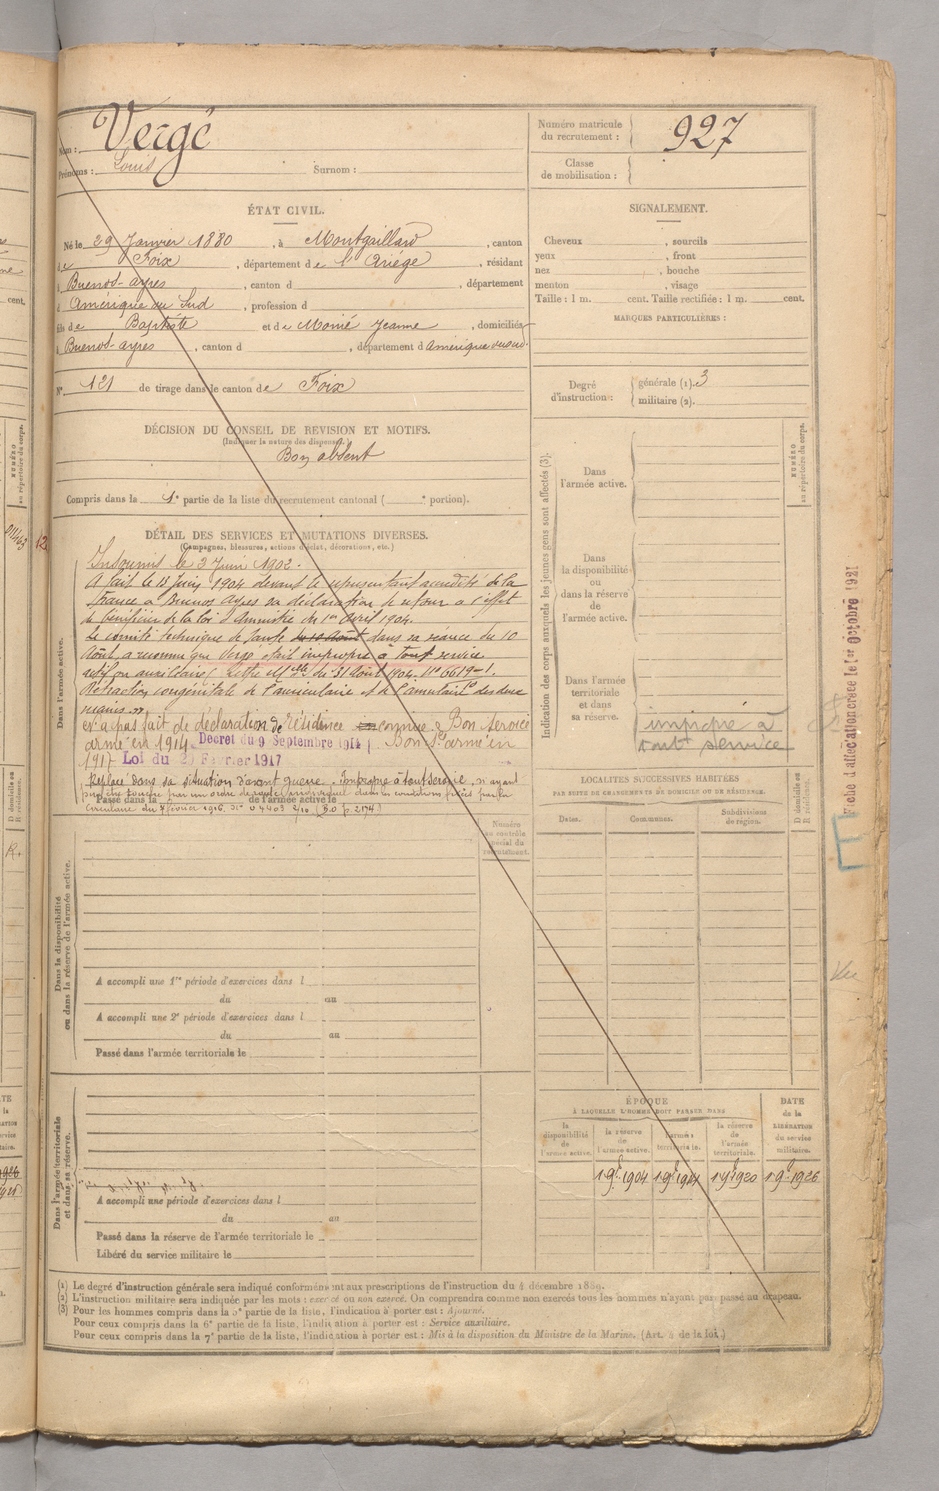 Nom : Vergé
Prénoms : Louis Surnom :
Numéro matricule du recrutement : 927
Classe de mobilisation :
ÉTAT CIVIL.
Né le 29 Janvier 1880, à Montgaillard, canton
de Foix, département de l'Ariége, résidant
à Buenos-ayres, canton d , département
d Amérique du Sud, profession d
fils de Baptiste et de Monié Jeanne, domiciliés
à Buenos-ayres, canton d , département d Amérique du sud.
N° 121 de tirage dans le canton de Foix
DÉCISION DU CONSEIL DE REVISION ET MOTIFS.
(Indiquer la nature des dispenses.)
Bon absent
Compris dans la 1e partie de la liste du recrutement cantonal ( e portion).
SIGNALEMENT.
Cheveux , sourcils
yeux , front
nez , bouche
menton , visage
Taille : 1 m. cent. Taille rectifiée : 1 m. cent.
MARQUES PARTICULIÈRES :
Degré d'instruction :
générale (1). 3
militaire (2).
DÉTAIL DES SERVICES ET MUTATIONS DIVERSES.
(Campagnes, blessures, actions d'éclat, décorations, etc.)
Dans l'armée active.
Insoumis le 2 Juin 1902.
A fait le 13 Juin 1904 devant le représentant accrédité de la
France à Buenos Ayres sa déclaration de retour à l'effet
de bénéficier de la loi d'Amnistie du 1er Avril 1904.
Le comité technique de Santé du 10 Août dans sa séance du 10
Août a reconnu que Vergé était impropre à tout service
actif ou auxiliaire / Lettre Mlle du 31 Août 1904. No 6619-1.
Rétraction congénitale de l'auriculaire et de l'annulaire des deux
mains.»
N'a pas fait de déclaration de résidence comme Bon service
armé en 1914 Décret du 9 Septembre 1914 Bon sce armé en
1917 Loi du 20 Février 1917
Replacé dans sa situation d'avant guerre. Impropre à tout service, n'ayant
pas été touché par un ordre de route individuel dans les conditions fixées par la
Passé dans la de l'armée active le
Circulaire du 7 février 1916 No 04403 2/10 (B.O p. 2174)
Numéro au contrôle spécial du recrutement.
Dans la disponibilité ou dans la réserve de l'armée active.
A accompli une 1re période d'exercices dans l
du au
A accompli une 2e période d'exercices dans l
du au
Passé dans l'armée territoriale le
Dans l'armée territoriale et dans sa réserve.
A accompli une période d'exercices dans l
du au
Passé dans la réserve de l'armée territoriale le
Libéré du service militaire le
Indication des corps auxquels les jeunes gens sont affectés (3).
NUMÉRO au répertoire du corps.
Dans l'armée active.
Dans la disponibilité ou dans la réserve de l'armée active.
Dans l'armée territoriale et dans sa réserve.
impropre à
tout service
LOCALITÉS SUCCESSIVES HABITÉES
PAR SUITE DE CHANGEMENTS DE DOMICILE OU DE RÉSIDENCE.
Dates. Communes. Subdivisions de région. D domicile ou R résidence.
ÉPOQUE
À LAQUELLE L'HOMME DOIT PASSER DANS
DATE de la LIBÉRATION du service militaire.
la disponibilité de l'armée active. la réserve de l'armée active. l'armée territoriale. la réserve de l'armée territoriale.
1 9e 1904 1 9e 1914 1 9e 1920 1 9e 1926
Fiche d'affectation créée le 1er Octobre 1921
Vu
(1) Le degré d'instruction générale sera indiqué conformément aux prescriptions de l'instruction du 4 décembre 1889.
(2) L'instruction militaire sera indiquée par les mots : exercé ou non exercé. On comprendra comme non exercés tous les hommes n'ayant pas passé au drapeau.
(3) Pour les hommes compris dans la 5e partie de la liste, l'indication à porter est : Ajourné.
Pour ceux compris dans la 6e partie de la liste, l'indication à porter est : Service auxiliaire.
Pour ceux compris dans la 7e partie de la liste, l'indication à porter est : Mis à la disposition du Ministre de la Marine. (Art. 4 de la loi.)